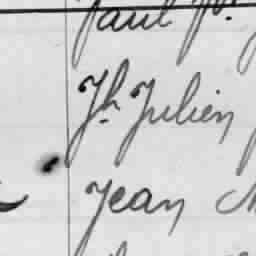 Paul
Jh Julien
Jean